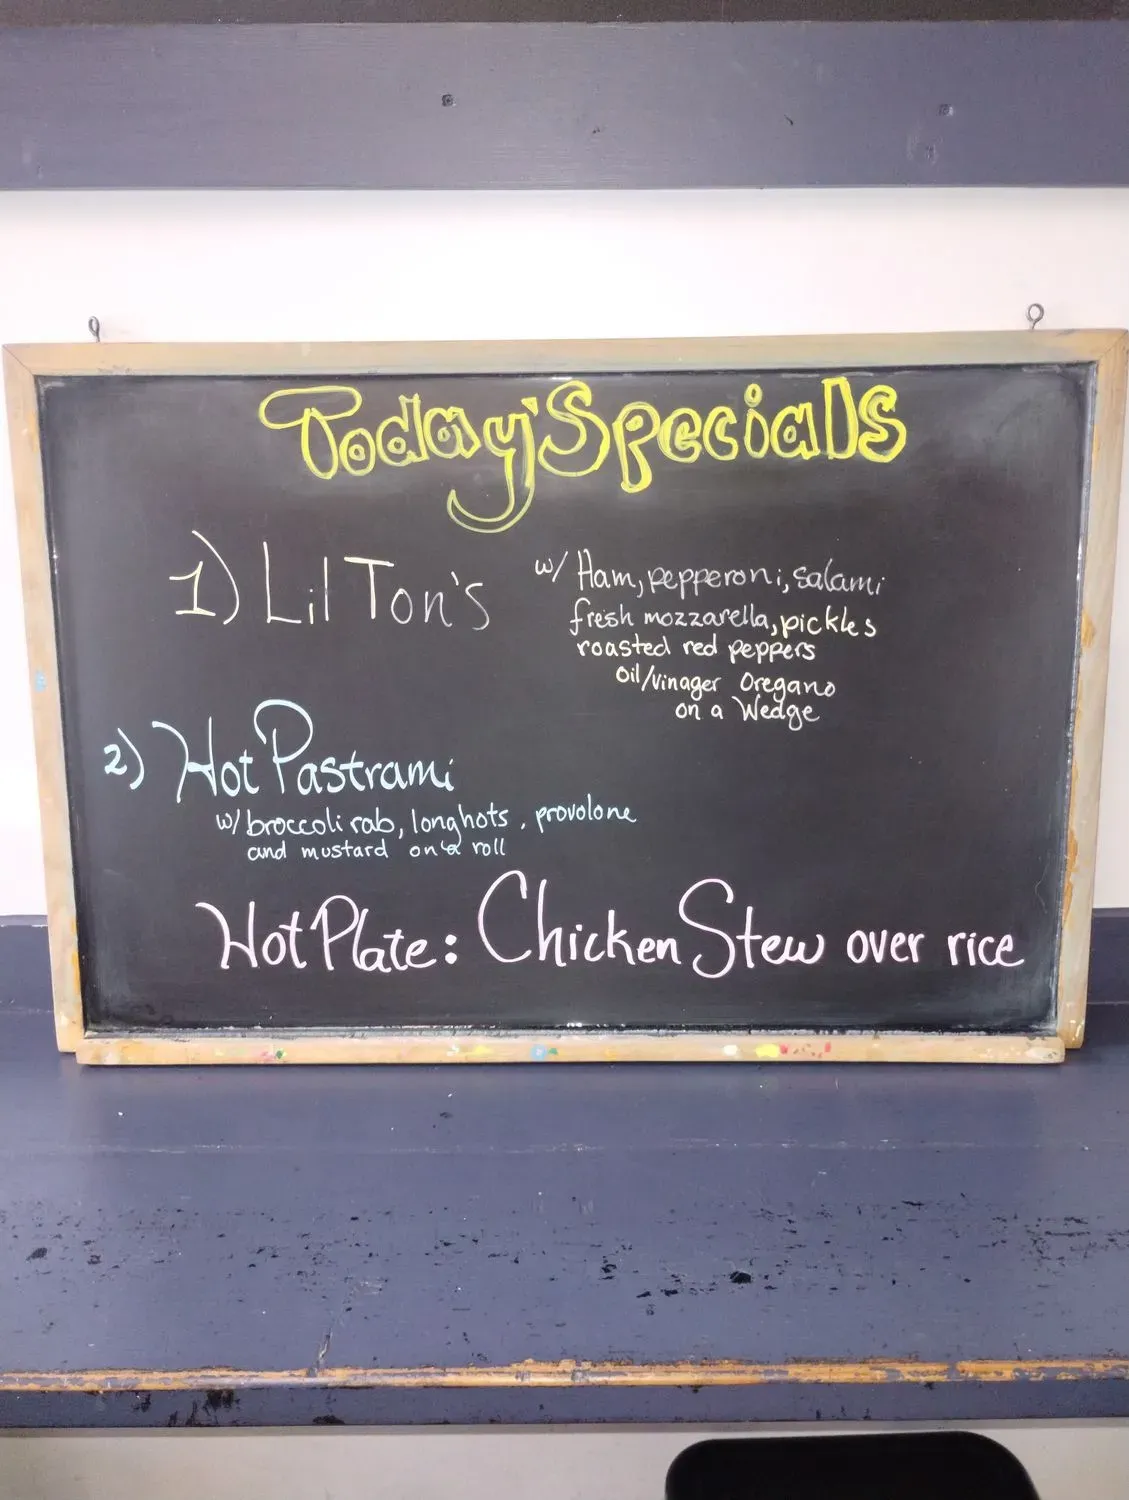 Today'Specials
1) Lil Ton's
w/ Ham, pepperoni, salami
fresh mozzarella, pickles
roasted red peppers
oil/vinager Oregano
on a Wedge
2) Hot Pastrami
w/ broccoli rab, longhots, provolone
and mustard on a roll
Hot Plate: Chicken Stew over rice